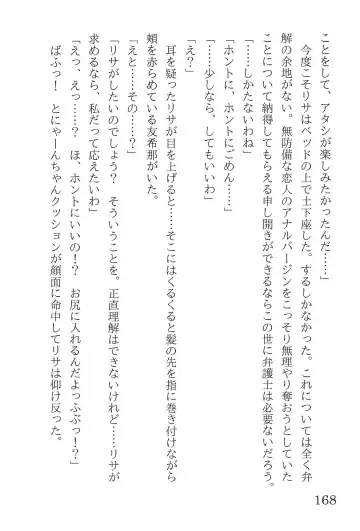 ことをして、アタシが楽しみたかったんだ……」
　今度こそリサはベッドの上で土下座した。するしかなかった。これについては全く弁
解の余地がない。無防備な恋人のアナルバージンをこっそり無理やり奪おうとしていた
ことについて納得してもらえる申し開きができるならこの世に弁護士は必要ないだろう。
「……しかたないわね」
「ホントに、ホントにごめん……」
「……少しなら、してもいいわ」
「え？」
　耳を疑ったリサが目を上げると……そこにはくるくると髪の先を指に巻き付けながら
頬を赤らめている友希那がいた。
「えと……その……？」
「リサがしたいのでしょう？　そういうことを。正直理解はできないけれど……リサが
求めるなら、私だって応えたいわ」
「えっ、えっ……？　ほ、ホントにいいの！？　お尻に入れるんだよっふぶっ！？」
　ばふっ！　とにゃーんちゃんクッションが顔面に命中してリサは仰け反った。
168